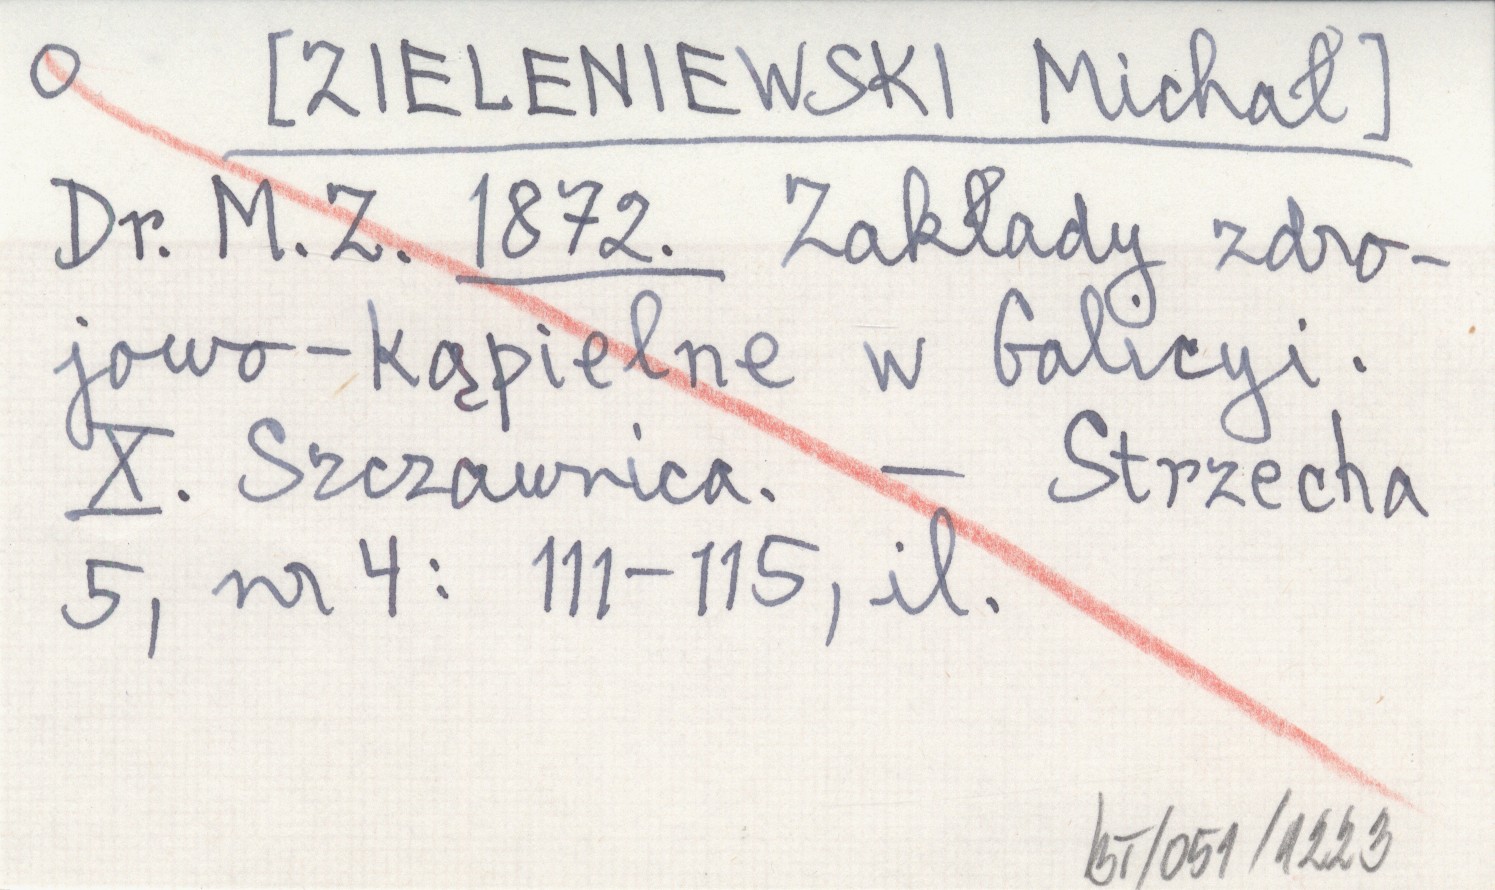 O [ZIELENIEWSKI Michał]
Dr. M. Z. 1872. Zakłady zdro-
jowo-kąpielne w Galicyi.
X. Szczawnica. — Strzecha
5, nr 4: 111-115, il.
BT/051/1223